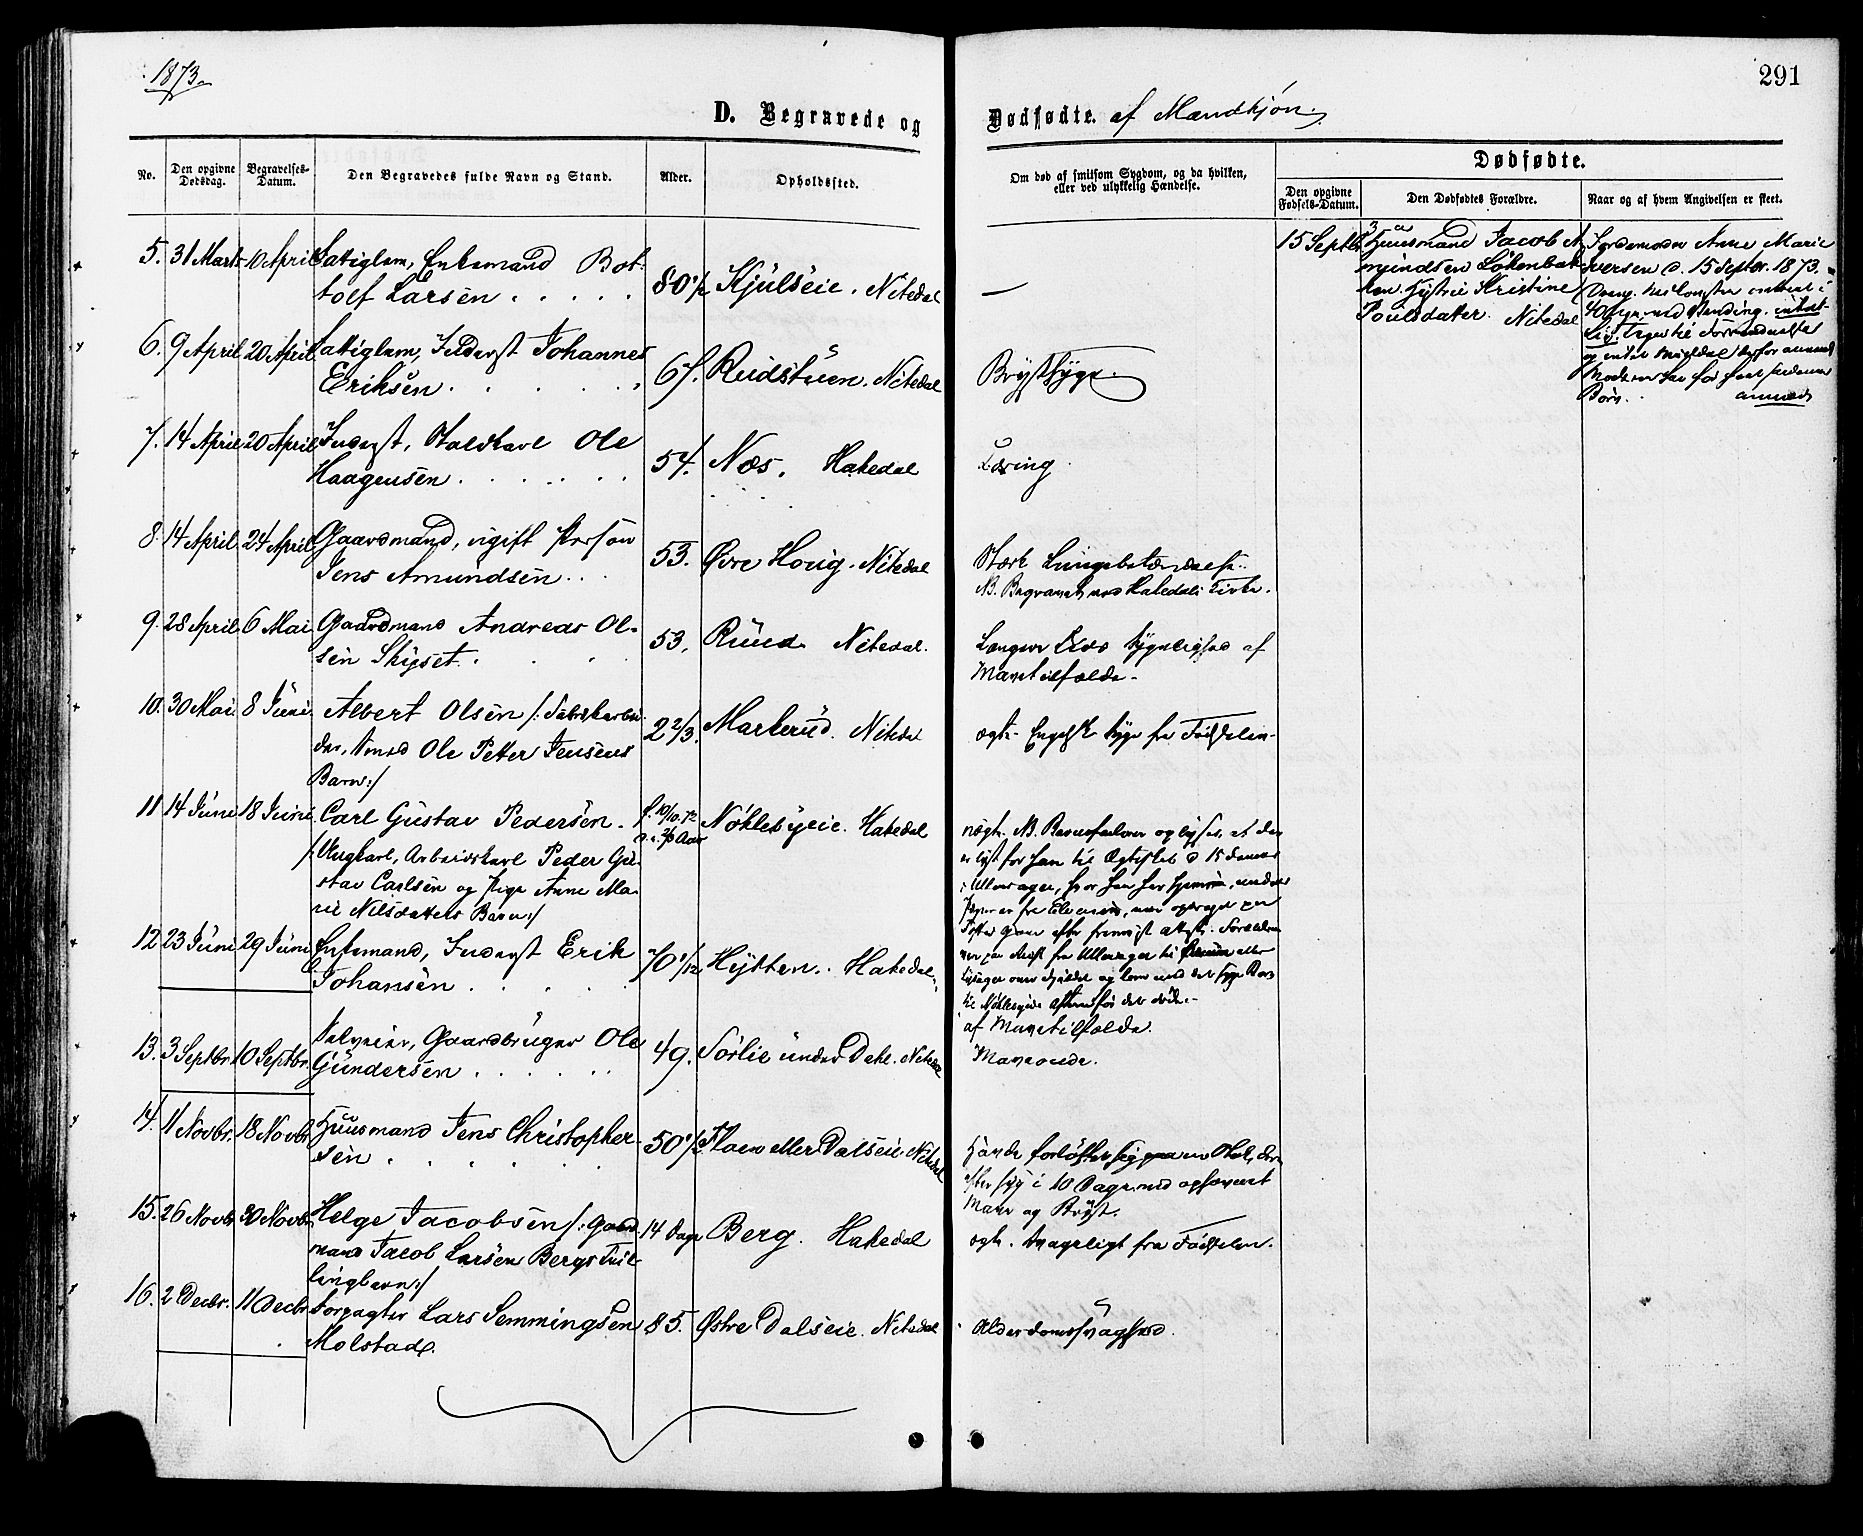 1873
291
D. Begravede og Dødfødte. af Mandkjøn.
No.
Den opgivne Dødsdag.
Begravelses-Datum.
Den Begravedes fulde Navn og Stand.
Alder.
Opholdssted.
Om død af smitsom Sygdom, og da hvilken,
eller ved ulykkelig Hændelse.
Dødfødte.
Den opgivne Fødsels-Datum.
Den Dødfødtes Forældre.
Naar og af hvem Angivelsen er skeet.
5. 31 Marts 10 April Fattiglem, Enkemand Bot-
tolf Larsen 80 1/2 Kjulseie. Nitedal —
15 Septb. Huusmand Jacob A-
mundsen Løkenbak-
ken. Hustru Kristine
Poulsdater. Nitedal
Jordemoder Anne Marie
Iversen d. 15 Septbr. 1873.
6. 9 April 20 April Fattiglem, Inderst Johannes
Eriksen 67. Rudstuen. Nitedal Brystsyge.
Børn. anmeldt
7. 14 April 20 April Inderst, Staldkarl Ole
Haagensen 54. Næs. Hakedal Tæring
8. 14 April 24 April Gaardmand, ugift Person
Jens Amundsen 53. Øvre Houg. Nitedal Stærk Lungebetændelse.
NB. Begravet ved Hakedals Kirke.
9. 28 April 6 Mai Gaardmand Andreas Ol-
sen Skyset 53. Ruud. Nitedal. Længere Tids Sygelighed af
Mavetilfælde.
10. 30 Mai 8 Juni Albert Olsen /: Fabrikarbei-
der, Ole Petter Jensens
Barn :/ 2 2/3. Markerud. Nitedal ægte. Engelsk Syge fra Fødselen.
11 14 Juni 18 Juni Carl Gustav Pedersen. f. 19/10.72 Nøklebyeie. Hakedal
/: Ungkarl, Arbeidskarl Peder Gu-
stav Carlsen og Pige Anne Ma-
rie Nilsdatters Barn :/
uægte. NB. Barnefaderen oplyses, at
er lyst for ham til Ægteskab d 15
af Mavetilfælde.
12 23 Juni 29 Juni Enkemand, Inderst Erik
Johansen 70 1/12 Hytten. Hakedal
13. 3 Septbr. 10 Septbr. Selveier, Gaardbruger Ole
Gundersen 49. Sørlie under Dehl. Nitedal Maveonde.
14. 11 Novbr. 18 Novbr. Huusmand Jens Christopher-
sen 50 1/2 Floen eller Dalseie. Nitedal
efter syg i 10 Dage med ophovnet
Mave og Bryst.
15. 26 Novbr. 30 Novbr. Helge Jacobsen /: Gaard-
mand Jacob Larsen Bergs Tvil-
lingbarn :/ 14 Dage Berg. Hakedal ægte. Svageligt fra Fødselen.
16. 2 Decbr. 11 Decbr Forpagter Lars Semmingsen
Molstad. 85. Østre Dalseie. Nitedal Alderdomssvaghed.